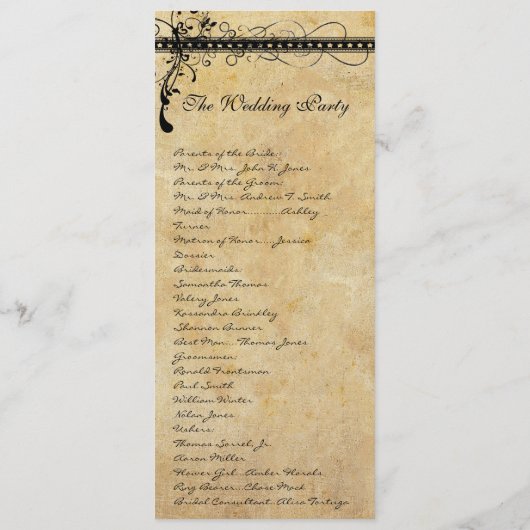 The Wedding Party
Parents of the Bride:
Mr. & Mrs. John H. Jones
Parents of the Groom:
Mr. & Mrs. Andrew T. Smith
Maid of Honor...........Ashley
Turner
Matron of Honor.....Jessica
Dossier
Bridesmaids:
Samantha Thomas
Valery Jones
Kassandra Brinkley
Shannon Bunner
Best Man....Thomas Jones
Groomsmen:
Ronald Frontsman
Paul Smith
William Winter
Nolan Jones
Ushers:
Thomas Sorrel, Jr.
Aaron Miller
Flower Girl...Amber Harals
Ring Bearer...Chase Mack
Bridal Consultant...Alisa Tortuga